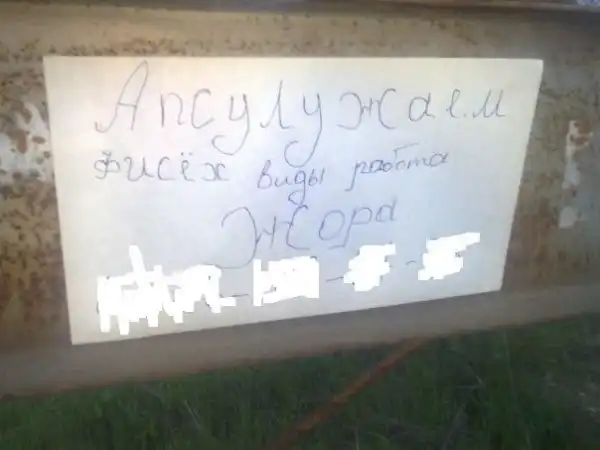 Апсулужаем
фисёх виды работа
Жора